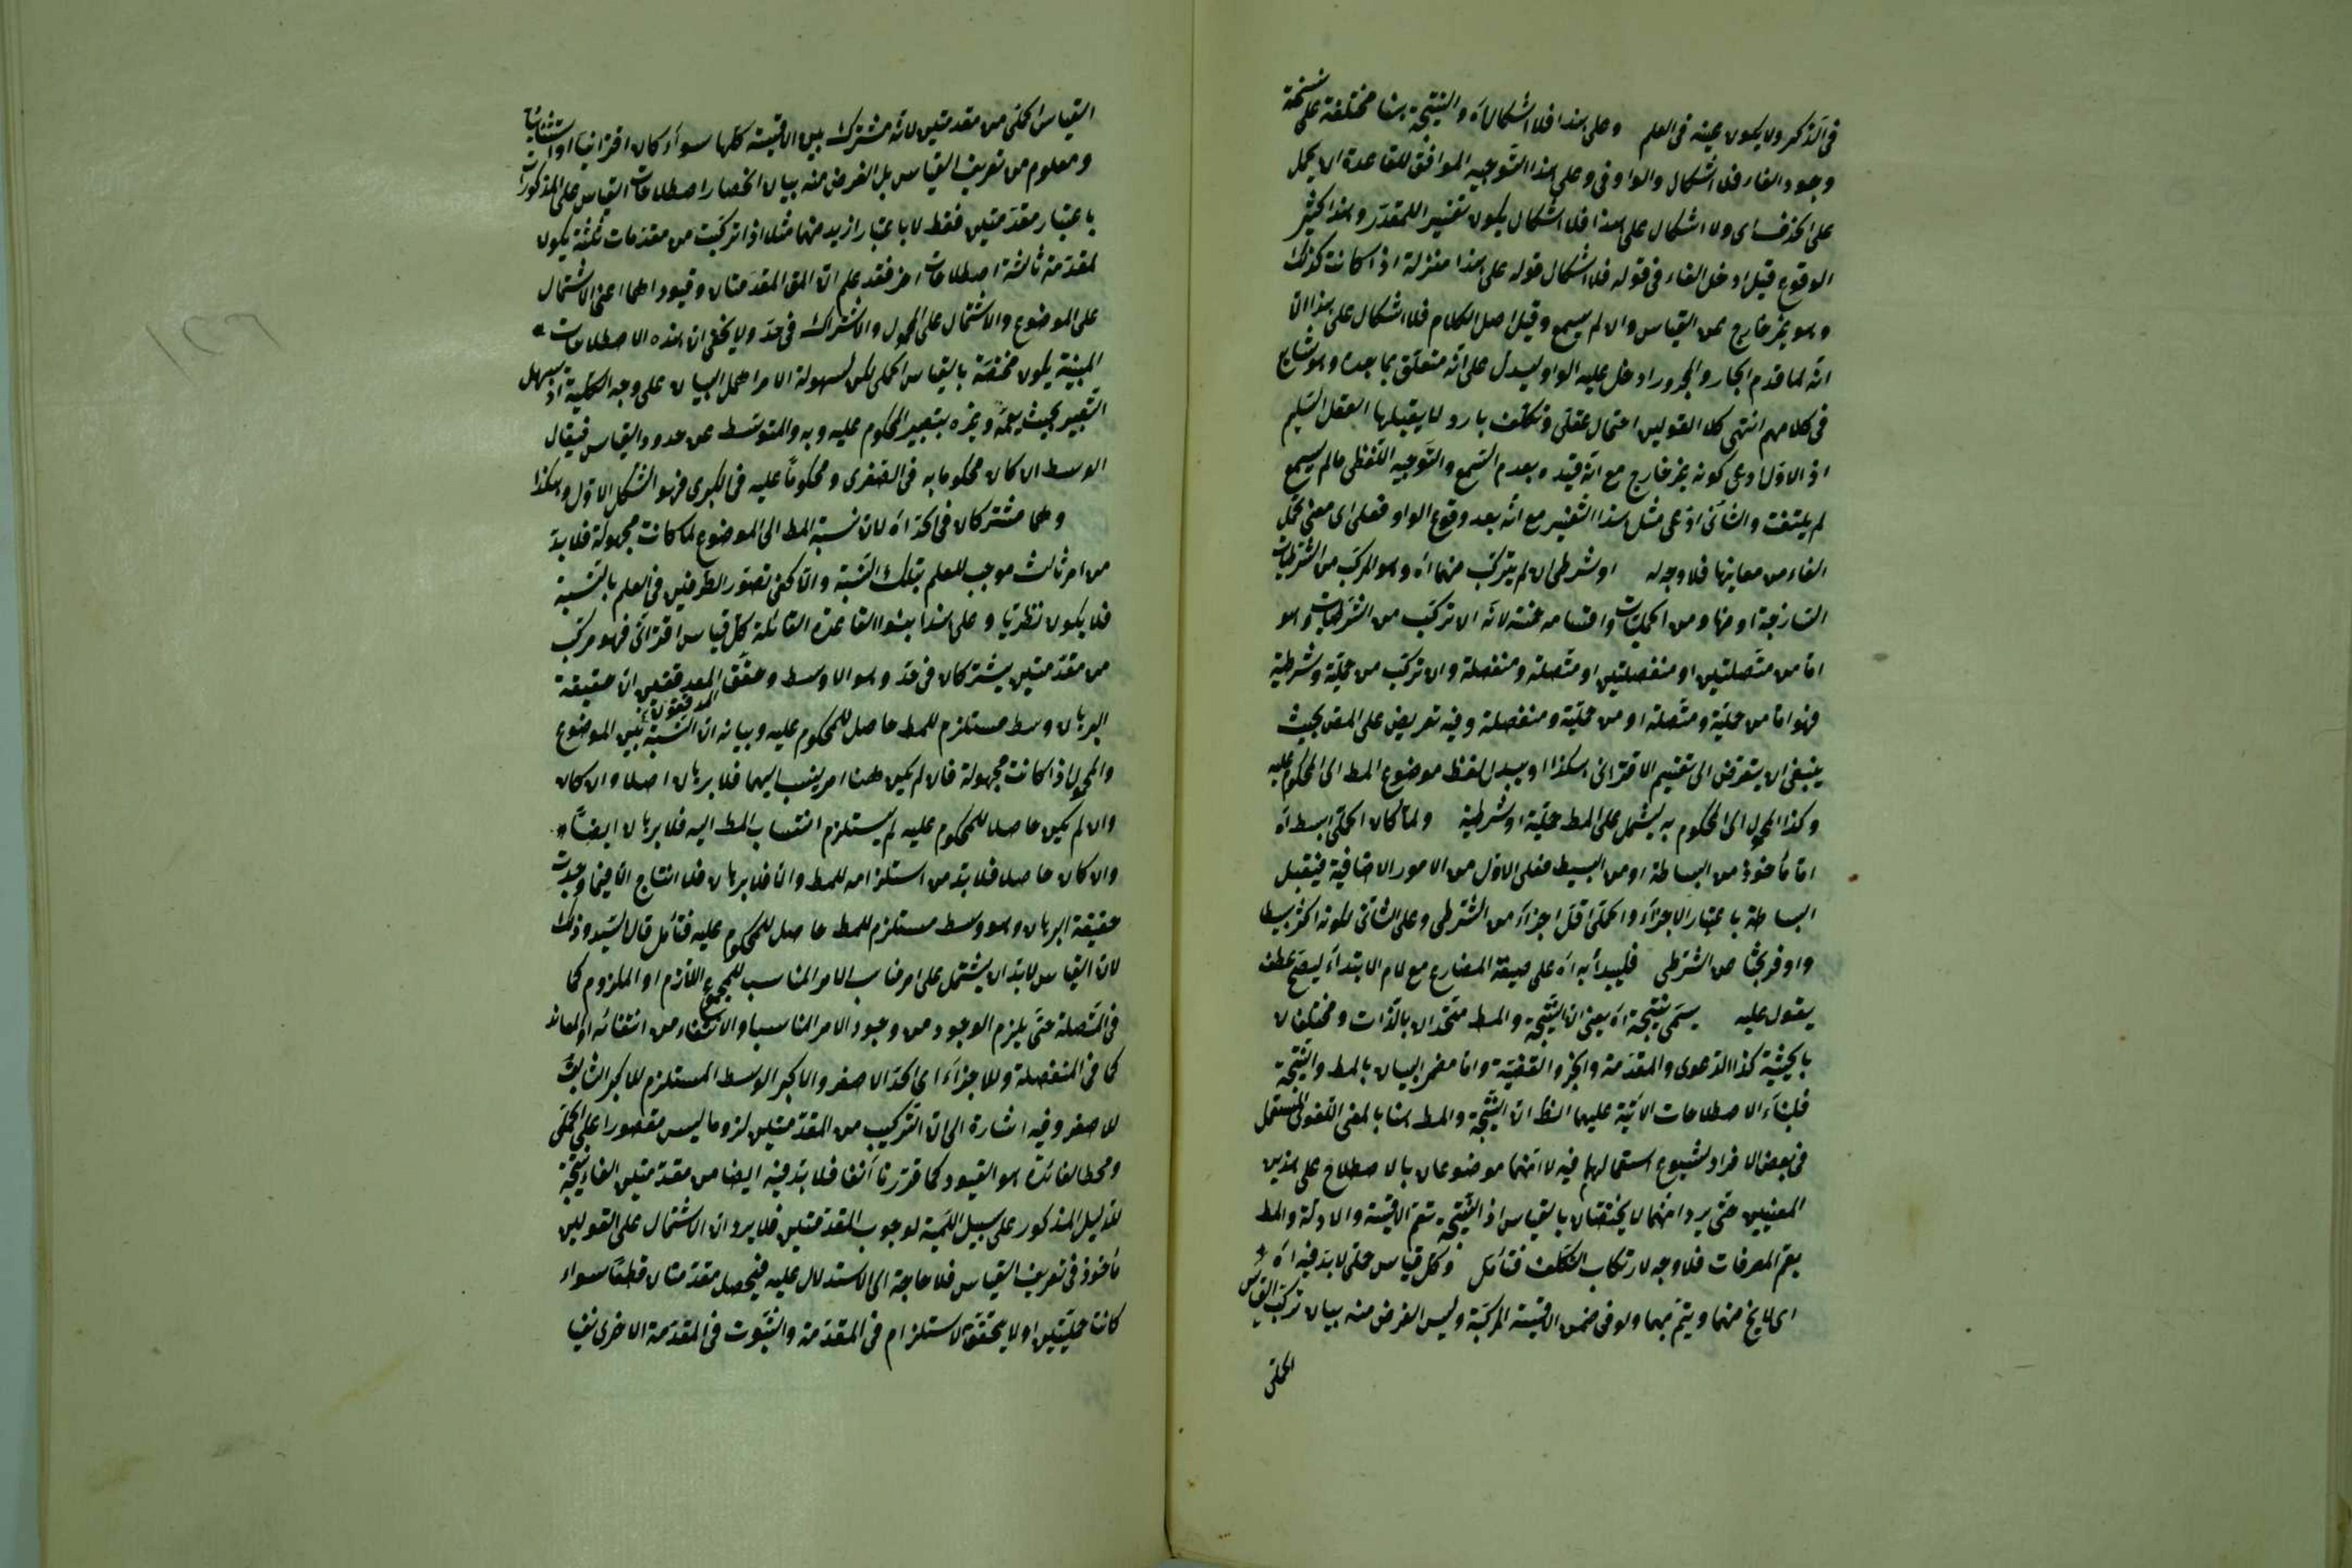 فى الذكر ولا يكون عينه فى العلم وعلى هذا فلا اشكال اه والنتيجة هنا مختلفة على نسخة
وجود الفاء فلا اشكال والواو فى وعلى هذا التوجيه الموافق للقاعدة ان يحمل
على الحذف اى ولا اشكال على هذا فلا اشكال يكون تفسيرا للمقدر وهذا كثير
الوقوع قيل ادخل الفاء فى قوله فلا اشكال قوله على هذا منزلة اذا كانت كذلك
وهو غير خارج عن القياس وان لم يسمع وقيل اصل الكلام فلا اشكال على هذا الا
انه لما قدم الجار والمجرور ادخل عليه الواو ليدل على انه متعلق بما بعده وهو شايع
فى كلامهم انتهى كلا القولين احتمال عقلى وتكلف بارد لا يقبلها العقل السليم
اذ الاول ادعى كونه غير خارج مع انه قيده بعدم السمع والتوجيه اللفظى مالم يسمع
لم يلتفت والثانى ادعى مثل هذا التفسير مع انه بعد وقوع الواو فعلى اى معنى تحمل
الفاء من معانيها فلا وجه له او شرطى ان لم يتركب منهما اه وهو المركب من الشرطيات
الساذجة او منها ومن الحمليات واقسامه خمسة لانه ان تركب من الشرطيات وهو
اما من متصلتين او منفصلتين او متصلة ومنفصلة وان تركب من حملية وشرطية
فهو اما من حملية ومتصلة او من حملية ومنفصلة وفيه تعريض على المص بحيث
ينبغى ان يتعرض الى تقسيم الاقترانى هكذا او يبدل لفظ موضوع المط الى المحكوم عليه
وكذا المحمول الى المحكوم به يشتمل على المط حملية او شرطية ولما كان الحملى ابسط اه
اما مأخوذ من البساطة او من البسيط فعلى الاول من الامور الاضافية فيقبل
البساطة باعتبار الاجزاء والحملى اقل اجزاء من الشرطى وعلى الثانى لكونه اكثر بسيطا
واوفر بحثا من الشرطى فليبدأ به اه على صيغة المضارع مع لام الابتداء ليصح عطف
يقول عليه يسمى نتيجة اه يعنى ان النتيجة والمط متحدان بالذات ومختلفان
بالحيثية كذا الدعوى والمقدمة والجزء والقضية واما حصر البيان بالمط والنتيجة
فلبناء الاصطلاحات الاتية عليهما الظ ان النتيجة والمط هنا بالمعنى اللغوى المستعمل
فى بعض الافراد لشيوع استعمالهما فيه لا انهما موضوعان بالاصطلاح على هذين
المعنيين حتى يرد انهما لا يختصان بالقياس اذ النتيجة تعم الاقيسة والادلة والمط
يعم المعرفات فلا وجه لارتكاب التكلف فتأمل وكل قياس حملى لا بد فيه اه
اى لا يخ منهما ويتم بهما ولو فى ضمن الاقيسة المركبة وليس الغرض منه بيان تركب القياس
الحملى
القياس الحملى من مقدمتين لانه مشترك بين الاقيسة كلها سواء كان اقترانيا او استثنائيا
ومعلوم من تعريف القياس بل الغرض منه بيان انحصار اصطلاحات القياس على المذكورات
باعتبار مقدمتين فقط لا باعتبار ازيد منهما مثلا اذا تركبت من مقدمات ثلثة يكون
لمقدمة ثالثة اصطلاحات اخر فقد علم ان المق المقدمتان وقيودهما اعنى الاشتمال
على الموضوع والاشتمال على المحمول والاشتراك فى حد ولا يخفى ان هذه الاصطلاحات
المبنية يكون مختصة بالقياس الحملى لكن لسهولة الامر اهمل البيان على وجه الكلية اذ يسهل
التعبير بحيث يعمه وغيره بتعبير المحكوم عليه وبه والمتوسط عن حدود القياس فيقال
الوسط ان كان محكوما به فى الصغرى ومحكوما عليه فى الكبرى فهو الشكل الاول وهكذا
وهما مشتركان فى الحد اه لان نسبة المط الى الموضوع لما كانت مجهولة فلا بد
من امر ثالث موجب للعلم بتلك النسبة والا كفى تصور الطرفين فى العلم بالنسبة
فلا يكون نظريا وعلى هذا بنوا القاعدة القائلة كل قياس اقترانى فهو مركب
من مقدمتين يشتركان فى حد وهو الاوسط وحقق المدققين ان حقيقة
المدققون
البرهان وسط مستلزم للمط حاصل للمحكوم عليه وبيانه ان النسبة بين الموضوع
والمحمول اذا كانت مجهولة فان لم يكن هنا امر ينسب اليهما فلا برهان اصلا وان كان
وان لم يكن حاصلا للمحكوم عليه لم يستلزم انتساب المط اليه فلا برهان ايضا
وان كان حاصلا فلا بد من استلزامه للمط والا فلا برهان فلا انتاج الا فيما وجدت
حقيقة البرهان وهو وسط مستلزم للمط حاصل للمحكوم عليه فتأمل قال السيد وذلك
لان القياس لا بد ان يشتمل على امر مناسب الامر المناسب للمجموع اللازم او الملزوم كما
فى المتصلة حتى يلزم الوجود من وجود الامر المناسب او الانتفاء من انتفائه او المعاند
كما فى المنفصلة وللاجزاء اى الحد الاصغر والاكبر الوسط المستلزم للاكبر الثابت
للاصغر وفيه اشارة الى ان التركيب من المقدمتين لزوما ليس مقصورا على الحملى
ومحط الفائدة هو القيود كما قررنا آنفا فلا بد فيه ايضا من مقدمتين الفاء نتيجة
للدليل المذكور على سبيل اللمية لوجوب المقدمتين فلا يرد ان الاشتمال على القولين
مأخوذ فى تعريف القياس فلا حاجة الى الاستدلال عليه فيحصل مقدمتان قطعا سواء
كانتا حمليتين او لا يتحقق الاستلزام فى المقدمة والثبوت فى المقدمة الاخرى نفيا